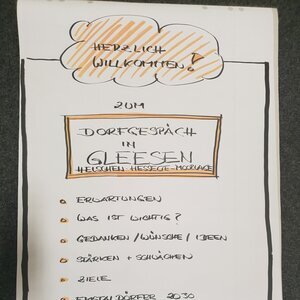 HERZLICH
WILLKOMMEN!
ZUM
DORFGESPÄCH
IN
GLEESEN
HELSCHEN HESSELTE-MOORLAGE
ERWARTUNGEN
WAS IST WICHTIG?
GEDANKEN/WÜNSCHE/IDEEN
STÄRKEN + SCHWÄCHEN
ZIELE
EMSTALDÖRFER 2030